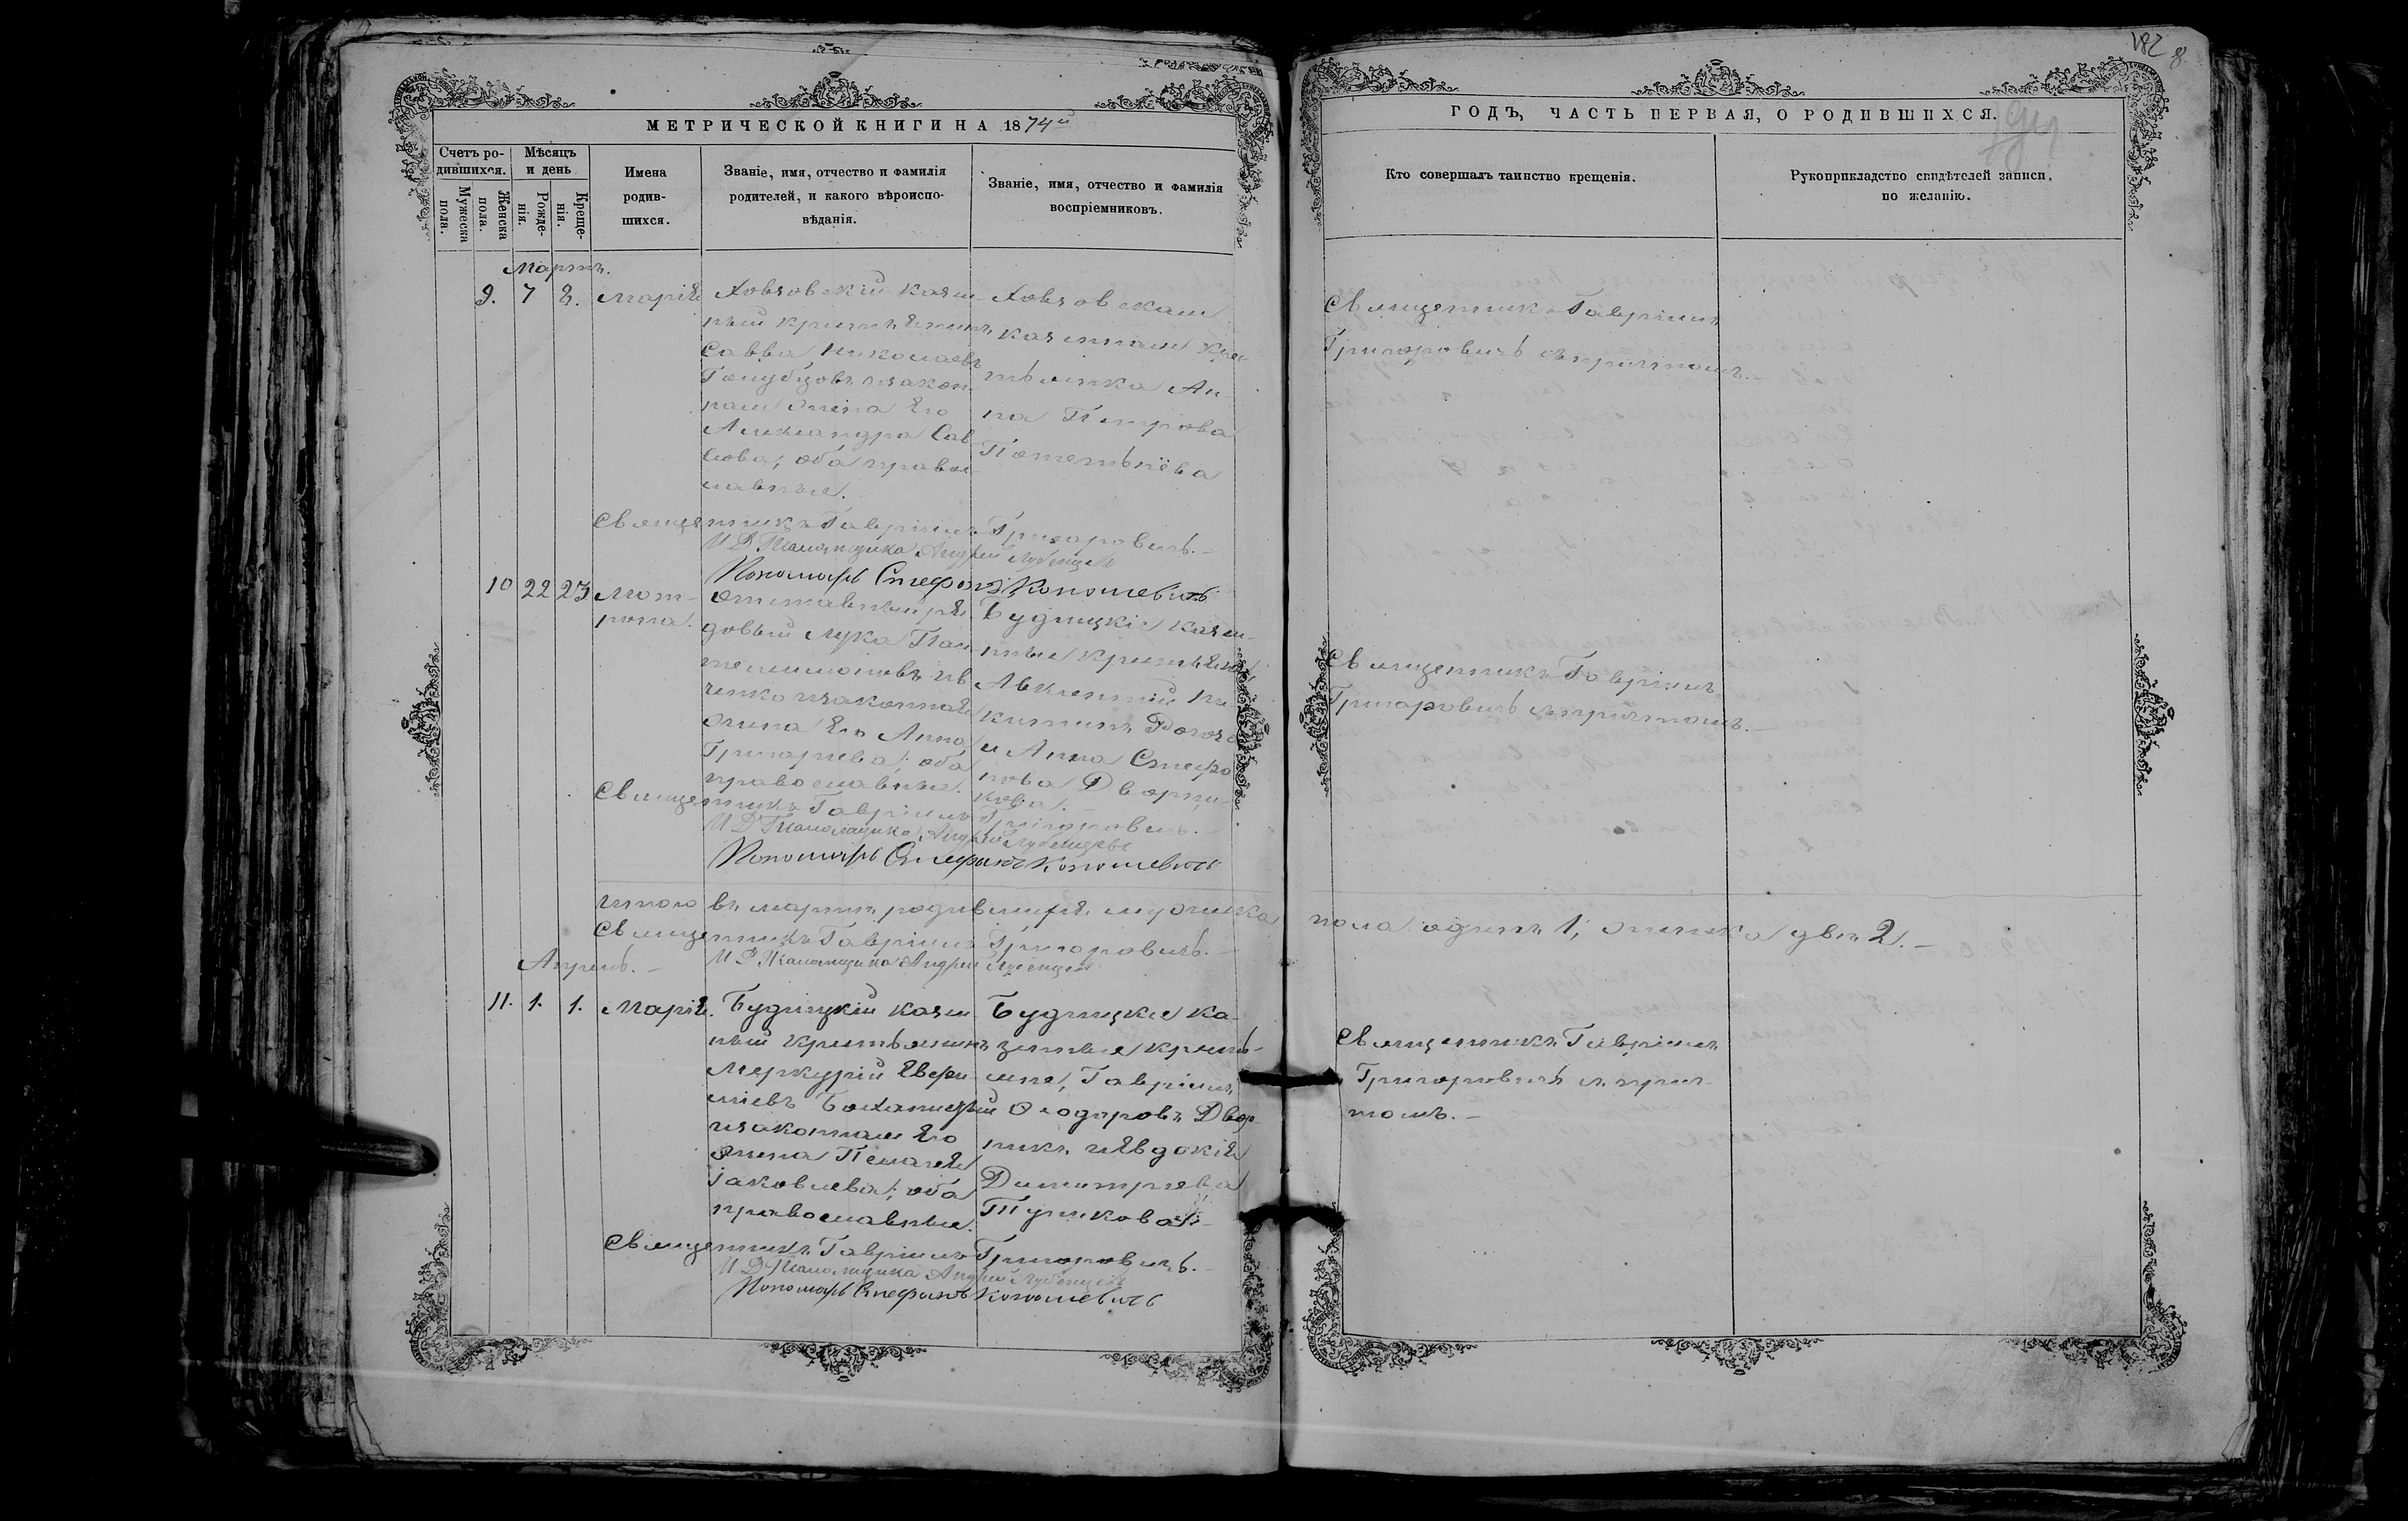 182
8.
МЕТРИЧЕСКОЙ КНИГИ НА 1874й
ГОДЪ, ЧАСТЬ ПЕРВАЯ, О РОДИВШИХСЯ.
Счетъ ро-
дившихся.
Мужеска
пола.
Женска
пола.
Мѣсяцъ
и день
Рожде-
нія.
Креще-
нія.
Имена
родив-
шихся.
Званіе, имя, отчество и фамилія
родителей, и какого вѣроиспо-
вѣданія.
Званіе, имя, отчество и фамилія
воспріемниковъ.
Кто совершалъ таинство крещенія.
Рукоприкладство свидѣтелей записи,
по желанію.
Мартъ.
9. 7 8. Марія
казен-
ный крестьянинъ
Савва Николаевъ
Голубцовъ и закон-
ная жена его
Александра Сав-
вова; оба право-
славные.
казенная кре-
стьянка Ан-
на Петрова
Священникъ Гавріилъ
Григоровичъ съ причтомъ.
Священникъ Гавріилъ Григоровичъ.
И. Д. Псаломщика Андрей
Пономарь Стефанъ Кономевичъ
10 22 23 Мот-
рона.
Отставный ря-
довый Лука Пан-
телимоновъ Ив-
ченко и законная
жена его Анна
Григорьева; оба
православные.
Будницкіе казен-
ные крестьяне,
Авксентій Ни-
китинъ
и Анна Стефа-
нова Дворни-
кова.
Священникъ Гавріилъ
Григоровичъ съ причтомъ.
Священникъ Гавріилъ Григоровичъ.
И. Д. Псаломщика Андрей
Пономарь Стефанъ Кономевичъ
Итого въ мартѣ родившихся мужеска пола одинъ 1; женска двѣ 2.
Священникъ Гавріилъ Григоровичъ.
И. Д. Псаломщика Андрей
Апрель.
11. 1. 1. Марія.
Будницкій казен-
ный крестьянинъ
Меркурій Евфи-
міевъ
и законная его
жена Пелагея
Іаковлева; оба
православные.
Будницкіе ка-
зенные кресть-
яне, Гавріилъ
Ѳеодоровъ Двор-
никъ и Евдокія
Димитріева
Священникъ Гавріилъ
Григоровичъ съ прич-
томъ.
Священникъ Гавріилъ Григоровичъ.
И. Д. Псаломщика Андрей
Пономарь Стефанъ Кономевичъ